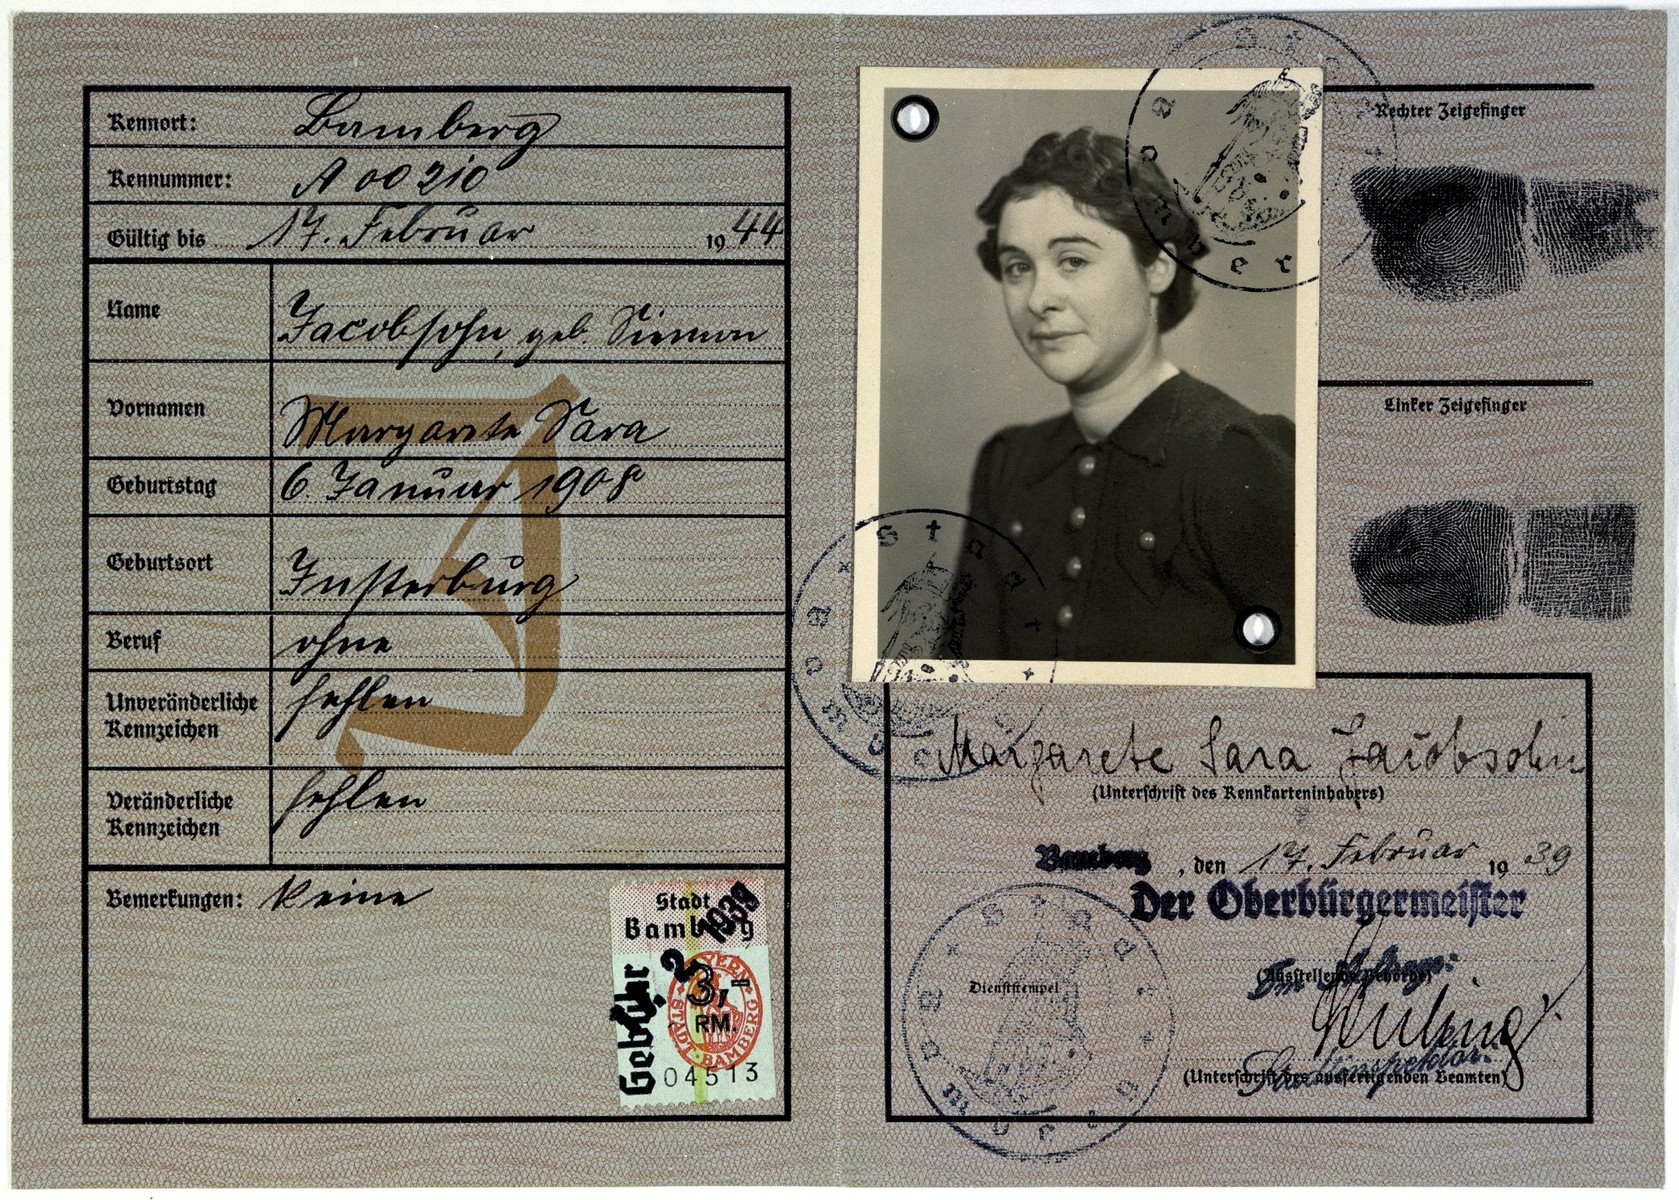 Kennort: Bamberg
Kennummer: A 00210
Gültig bis 17. Februar 1944
Name Jacobsohn, geb. Siemon
Vornamen Margarete Sara
Geburtstag 6 Januar 1908
Geburtsort Insterburg
Beruf ohne
Unveränderliche Kennzeichen fehlen
Veränderliche Kennzeichen fehlen
Bemerkungen: Keine
J
Stadt
Bamberg
2. 1939
Gebühr
3,-
RM.
BAYERN
STADT BAMBERG
04513
Rechter Zeigefinger
Linker Zeigefinger
Stadt Bamberg
Stadt Bamberg
Margarete Sara Jacobsohn
(Unterschrift des Kennkarteninhabers)
Bamberg, den 17. Februar 1939
Der Oberbürgermeister
(Ausstellende Behörde)
Dienststempel
Stadt Bamberg
Stadtinspektor.
(Unterschrift des ausfertigenden Beamten)